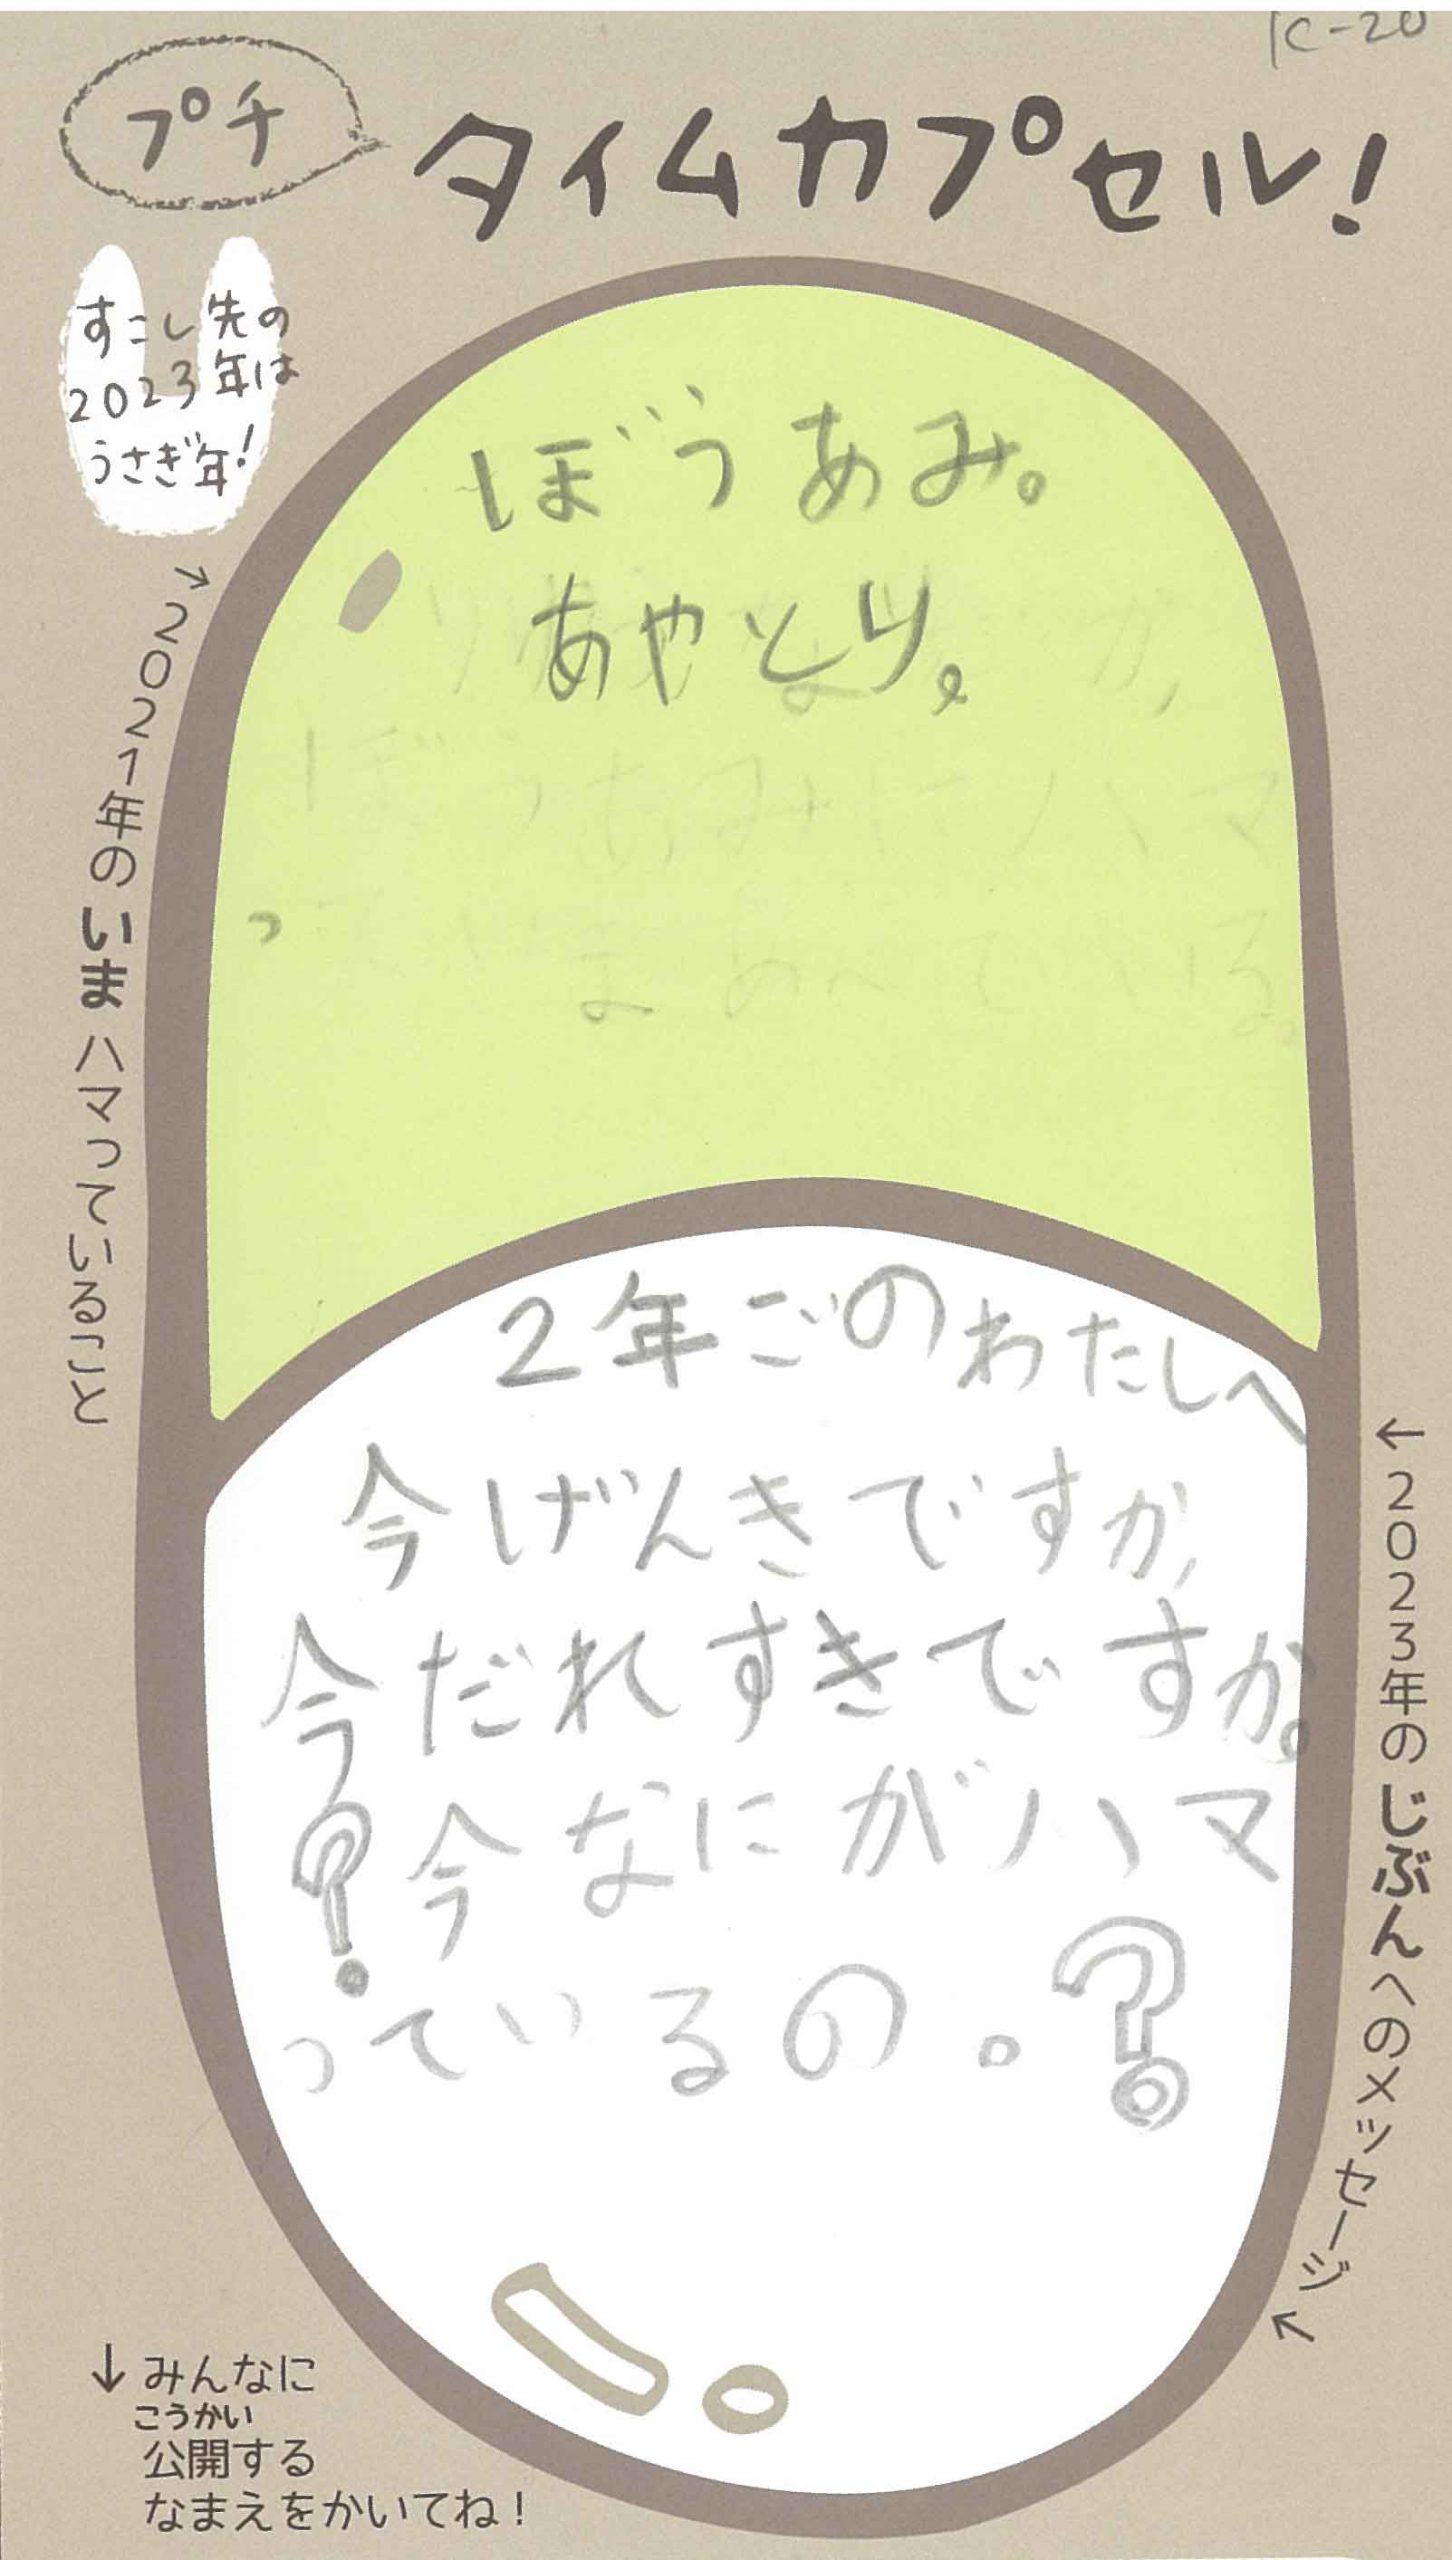 K-20
プチ
タイムカプセル!
すこし先の
2023年は
うさぎ年!
→2021年のいまハマっていること
ぼうあみ。
あやとり。
ぼうあみにハマ
っ
2年ごのわたしへ
今げんきですか,
今だれすきですか。
?今なにがハマ
っているの。?
←2023年のじぶんへのメッセージ↖
↓みんなに
こうかい
公開する
なまえをかいてね!